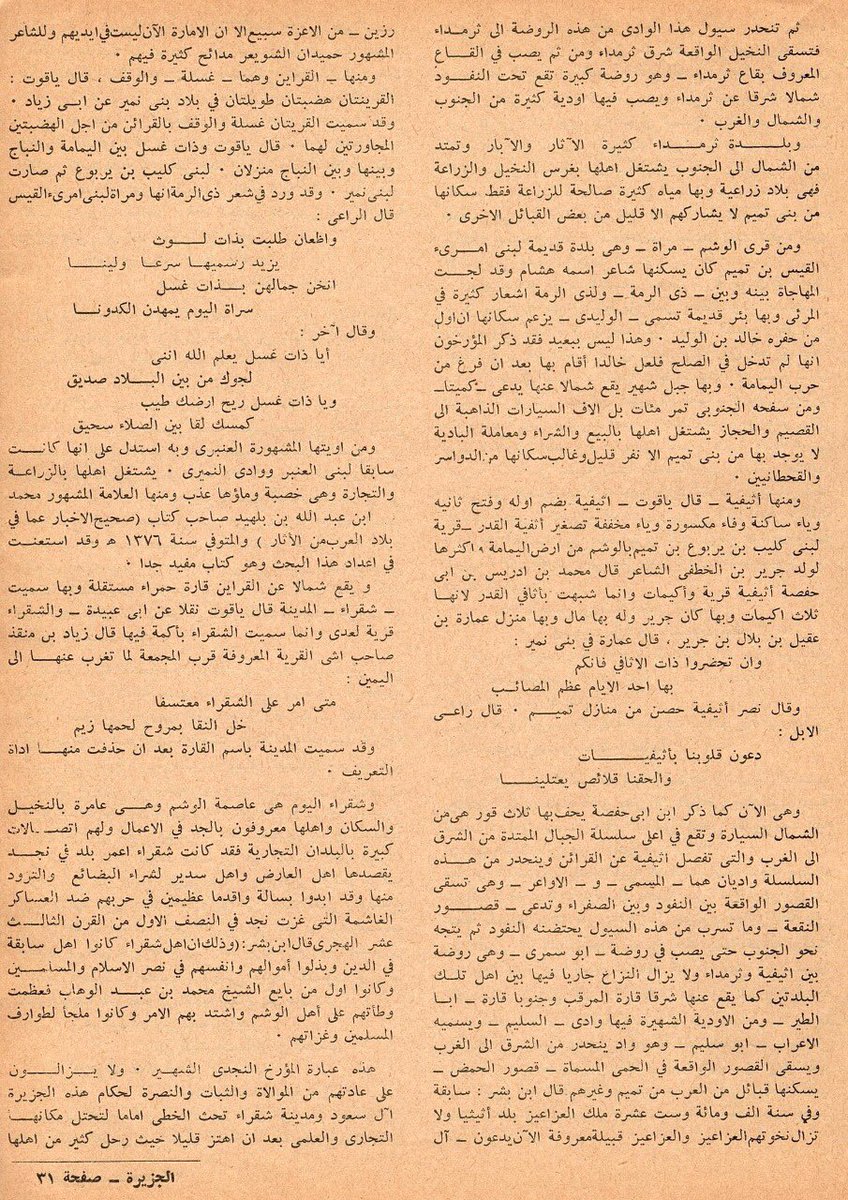 ثم تنحدر سيول هذا الوادى من هذه الروضة الى ثرمداء
فتسقى النخيل الواقعة شرق ثرمداء ومن ثم يصب في القاع
المعروف بقاع ثرمداء ــ وهو روضة كبيرة تقع تحت النفود
شمالا شرقا عن ثرمداء ويصب فيها اودية كثيرة من الجنوب
والشمال والغرب ٠
وبلــــدة ثرمـــداء كثيرة الآثار والآبار وتمتد
من الشمال الى الجنوب يشتغل اهلها بغرس النخيل والزراعة
فهى بلاد زراعية وبها مياه كثيرة صالحة للزراعة فقط سكانها
من بنى تميم لا يشاركهم الا قليل من بعض القبائل الاخرى ٠
ومن قرى الوشم ــ مراة ــ وهى بلدة قديمة لبنى امرىء
القيس بن تميم كان يسكنها شاعر اسمه هشام وقد لجت
المهاجاة بينه وبين ــ ذى الرمة ــ ولذى الرمة اشعار كثيرة في
المرئى وبها بئر قديمة تسمى ــ الوليدى ــ يزعم سكانها ان اول
من حفره خالد بن الوليد ٠ وهذا ليس ببعيد فقد ذكر المؤرخون
انها لم تدخل في الصلح فلعل خالدا أقام بها بعد ان فرغ من
حرب اليمامة ٠ وبها جبل شهير يقع شمالا عنها يدعى ــ كميتا ــ
ومن سفحه الجنوبى تمر مئات بل الاف السيارات الذاهبة الى
القصيم والحجاز يشتغل اهلها بالبيع والشراء ومعاملة البادية
لا يوجد بها من بنى تميم الا نفر قليل وغالب سكانها من الدواسر
والقحطانيين ٠
ومنها أثيفية ــ قال ياقوت ــ اثيفية بضم اوله وفتح ثانيه
وياء ساكنة وفاء مكسورة وياء مخففة تصغير أثفية القدر ــ قرية
لبنى كليب بن يربوع بن تميم بالوشم من ارض اليمامة واكثرها
لولد جرير بن الخطفى الشاعر قال محمد بن ادريس بن ابى
حفصة أثيفية قرية وأكيمات وانما شبهت بأثافي القدر لانها
ثلاث اكيمات وبها كان جرير وله بها مال وبها منزل عمارة بن
عقيل بن بلال بن جرير ، قال عمارة في بنى نمير :
وان تحضروا ذات الاثافي فانكم
بها احد الايام عظم المصائـب
وقال نصر أثيفية حصن من منازل تميـــم ٠ قال راعــى
الابل :
دعون قلوبنا بأثيفيـــــات
والحقنا قلائص يعتلينــــا
وهى الآن كما ذكر ابن ابى حفصة يحف بها ثلاث قور هى من
الشمال السيارة وتقع في اعلى سلسلة الجبال الممتدة من الشرق
الى الغرب والتى تفصل اثيفية عن القرائن وينحدر من هـــذه
السلسلة واديان هما ــ الميسمى ــ و ــ الاواعر ــ وهى تسقى
القصور الواقعة بين النفود وبين الصفراء وتدعى ــ قصـــور
النقعة ــ وما تسرب من هذه السيول يحتضنه النفود ثم يتجه
نحو الجنوب حتى يصب في روضة ــ ابو سمرى ــ وهى روضة
بين اثيفية وثرمداء ولا يزال النزاع جاريا فيها بين اهل تلــك
البلدتين كما يقع عنها شرقا قارة المرقب وجنوبا قارة ــ ابــا
الطير ــ ومن الاودية الشهيرة فيها وادى ــ السليم ــ ويسميه
الاعراب ــ ابو سليم ــ وهو واد ينحدر من الشرق الى الغرب
ويسقى القصور الواقعة في الحمى المسماة ــ قصور الحمض ــ
يسكنها قبائل من العرب من تميم وغيرهم قال ابن بشر : سابقة
وفي سنة الف ومائة وست عشرة ملك العزاعيز بلد أثيثيا ولا
تزال نخوتهم العزاعيز والعزاعيز قبيلة معروفة الآن يدعون ــ آل
رزين ــ من الاعزة سبيع الا ان الامارة الآن ليست في ايديهم وللشاعر
المشهور حميدان الشويعر مدائح كثيرة فيهم ٠
ومنها ــ القراين وهما ــ غسلة ــ والوقف ، قال ياقوت :
القرينتان هضبتان طويلتان في بلاد بنى نمير عن ابـى زياد ٠
وقد سميت القريتان غسلة والوقف بالقرائن من اجل الهضبتين
المجاورتين لهما ٠ قال ياقوت وذات غسل بين اليمامة والنباج
وبينها وبين النباج منزلان ٠ لبنى كليب بن يربوع ثم صارت
لبنى نمير ٠ وقد ورد في شعر ذى الرمة انها ومراة لبنى امرىء القيس
قال الراعى :
واظعان طلبت بذات لـــوث
يزيد رسميهـا سرعـا ولينـــا
انخن جمالهن بـــذات غسل
سراة اليوم يمهدن الكدونــا
وقال آخر :
أيا ذات غسل يعلم الله اننى
لجوك من بين البـــلاد صديق
ويا ذات غسل ريح ارضك طيب
كمسك لقا بين الصلاء سحيق
ومن اويتها المشهورة العنبرى وبه استدل على انها كانــت
سابقا لبنى العنبر ووادى النميرى ٠ يشتغل اهلها بالزراعـة
والتجارة وهى خصبة وماؤها عذب ومنها العلامة المشهور محمد
ابن عبد الله بن بلهيد صاحب كتاب (صحيح الاخبار عما في
بلاد العرب من الآثار ) والمتوفي سنة ١٣٧٦ هـ وقد استعنت
في اعداد هذا البحث وهو كتاب مفيد جدا ٠
و يقع شمالا عن القراين قارة حمراء مستقلة وبها سميت
ــ شقراء ــ المدينة قال ياقوت نقلا عن ابى عبيدة ــ والشقراء
قرية لعدى وانما سميت الشقراء بأكمة فيها قال زياد بن منقذ
صاحب اشى القرية المعروفة قرب المجمعة لما تغرب عنهــا الى
اليمين :
متى امر على الشقراء معتسفا
خل النقا بمروح لحمها زيم
وقد سميت المدينة باسم القارة بعد ان حذفت منهــا اداة
التعريف ٠
وشقراء اليوم هى عاصمة الوشم وهــى عامرة بالنخيـل
والسكان واهلها معروفون بالجد في الاعمال ولهم اتصـالات
كبيرة بالبلدان التجارية فقد كانت شقراء اعمر بلد في نجــد
يقصدها اهل العارض واهل سدير لشراء البضائع والتزود
منها وقد ابدوا بسالة واقدما عظيمين في حربهم ضد العساكر
الغاشمة التى غزت نجد في النصف الاول من القرن الثالـــث
عشر الهجرى قال ابن بشر : (وذلك ان اهل شقراء كانوا اهل سابقة
في الدين وبذلوا أموالهم وانفسهم في نصر الاسلام والمسلمــين
وكانوا اول من بايع الشيخ محمد بن عبــد الوهاب فعظمت
وطأتهم على أهل الوشم واشتد بهم الامر وكانوا ملجأ لطوارف
المسلمين وغزاتهم ٠
هذه عبارة المؤرخ النجدى الشهيــر ٠ ولا يـــزالـــون
على عادتهم من الموالاة والثبات والنصرة لحكام هذه الجزيرة
آل سعود ومدينة شقراء تحث الخطى اماما لتحتل مكانهـا
التجارى والعلمى بعد ان اهتز قليلا حيث رحل كثير من اهلها
الجزيرة ــ صفحة ٣١